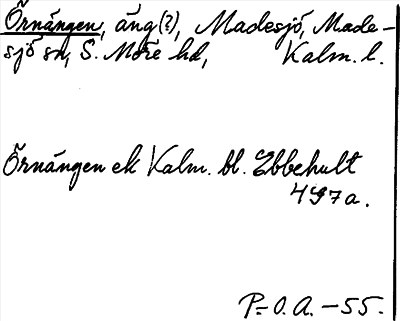 Örnängen, äng(?), Madesjö, Made-
sjö sn, S. Möre hd, Kalm. l.
Örnängen ek Kalm. bl. Ebbehult
497a.
P.O.A. -55.